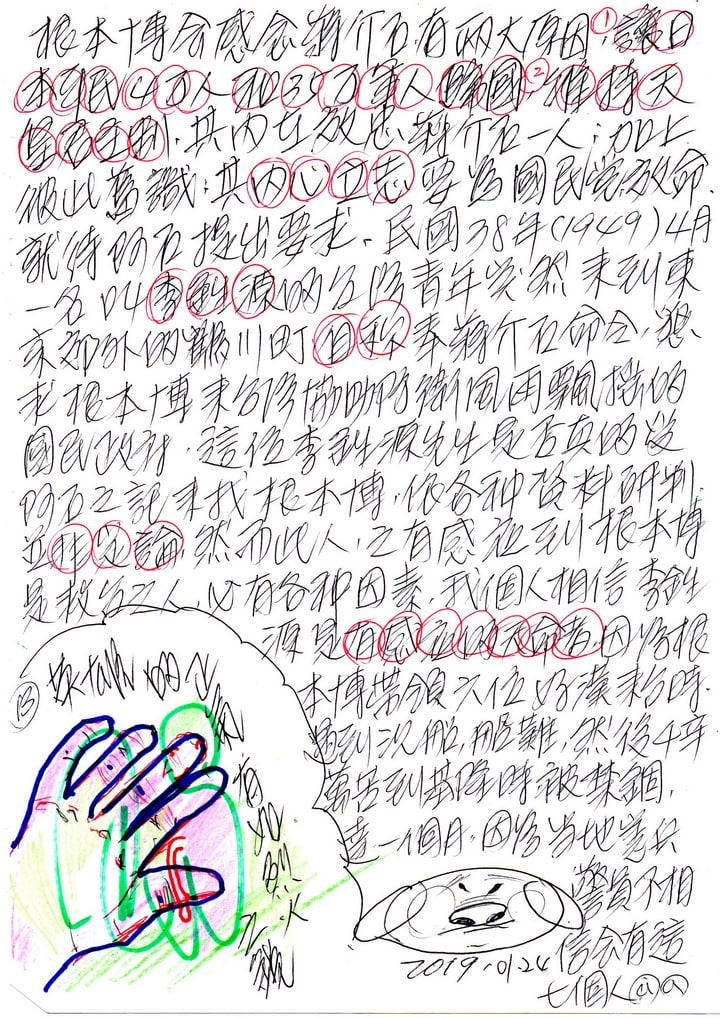 根本博会感念蔣介石有兩大原因①讓日
本軍民4万人和35万軍人歸國②維持天
皇制,其内在效忠蔣介石一人;加上
彼此舊識;其内心立志要為國民党效命,
就待阿石提出要求。民國38年(1949)4月
一名叫李鉎源的台湾青年突然来到東
京郊外的鶴川町自称奉蔣介石命令,懇
求根本博来台湾協助防衛風雨飄搖的
國民政府,這位李鉎源先生是否真的受
阿石之託来找根本博,依各种資料研判,
並非定論,然而此人,之有感应到根本博
是救台之人,必有各种因素,我個人相信李鉎
源是有感应的天命者因為根
本博帶領六位好漢来台時,
遇到沉船,船難,然後千辛
萬苦到基隆時被禁錮,
達一個月,因為当地憲兵
警員不相
信会有這
七個人
⑬
有如烈火
2019.01.24